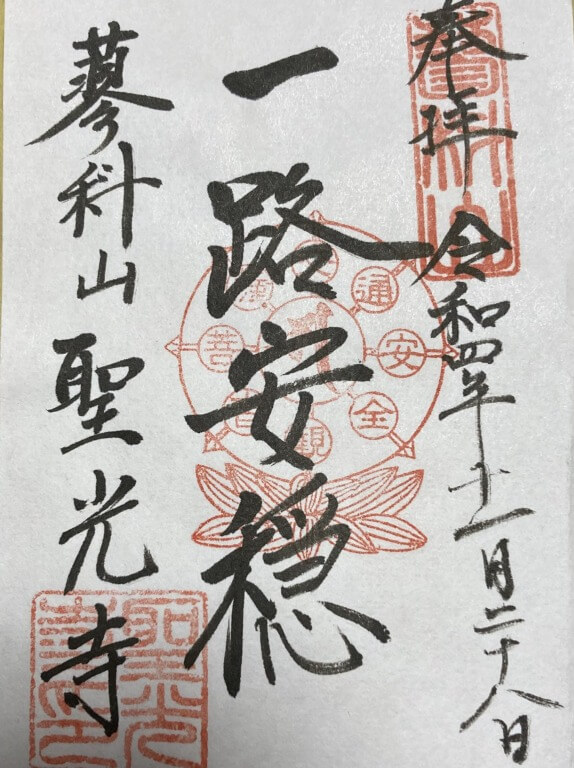 奉拝 令和四年十一月二十八日
一路安穏
蓼科山 聖光寺
交通安全
観音菩薩
聖光